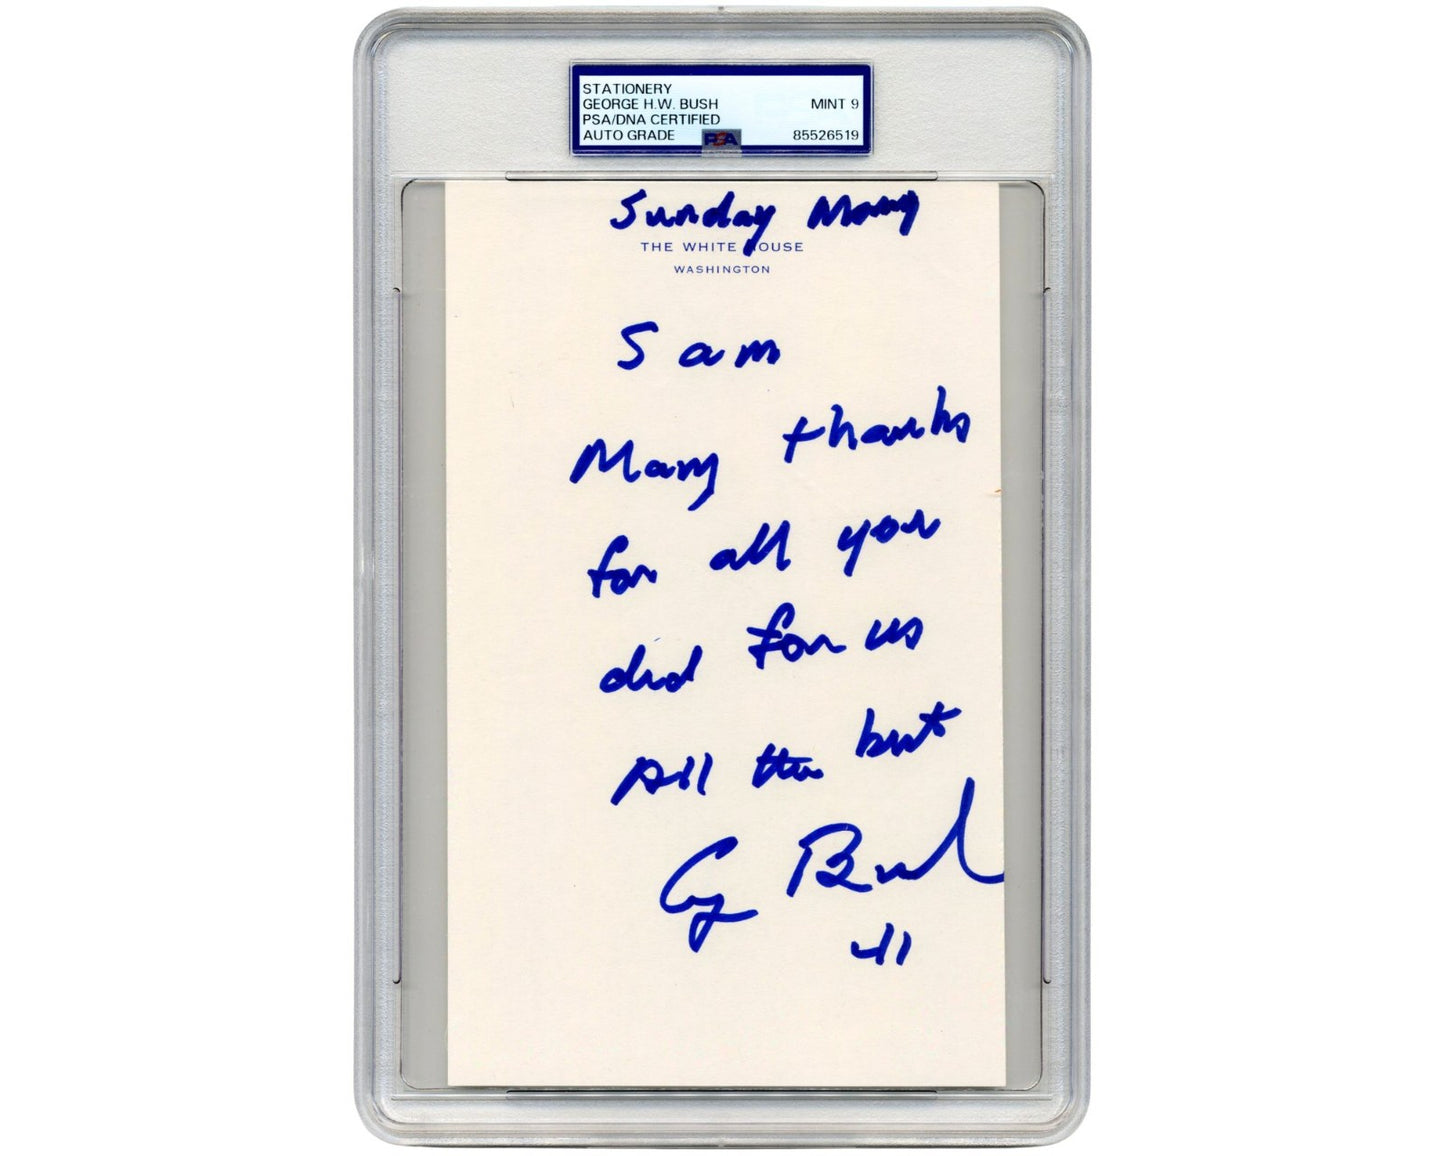 STATIONERY
GEORGE H.W. BUSH MINT 9
PSA/DNA CERTIFIED
AUTO GRADE PSA 85526519
Sunday Morng
THE WHITE HOUSE
WASHINGTON
Sam
Many thanks
for all you
did for us
All the best
G Bush
41